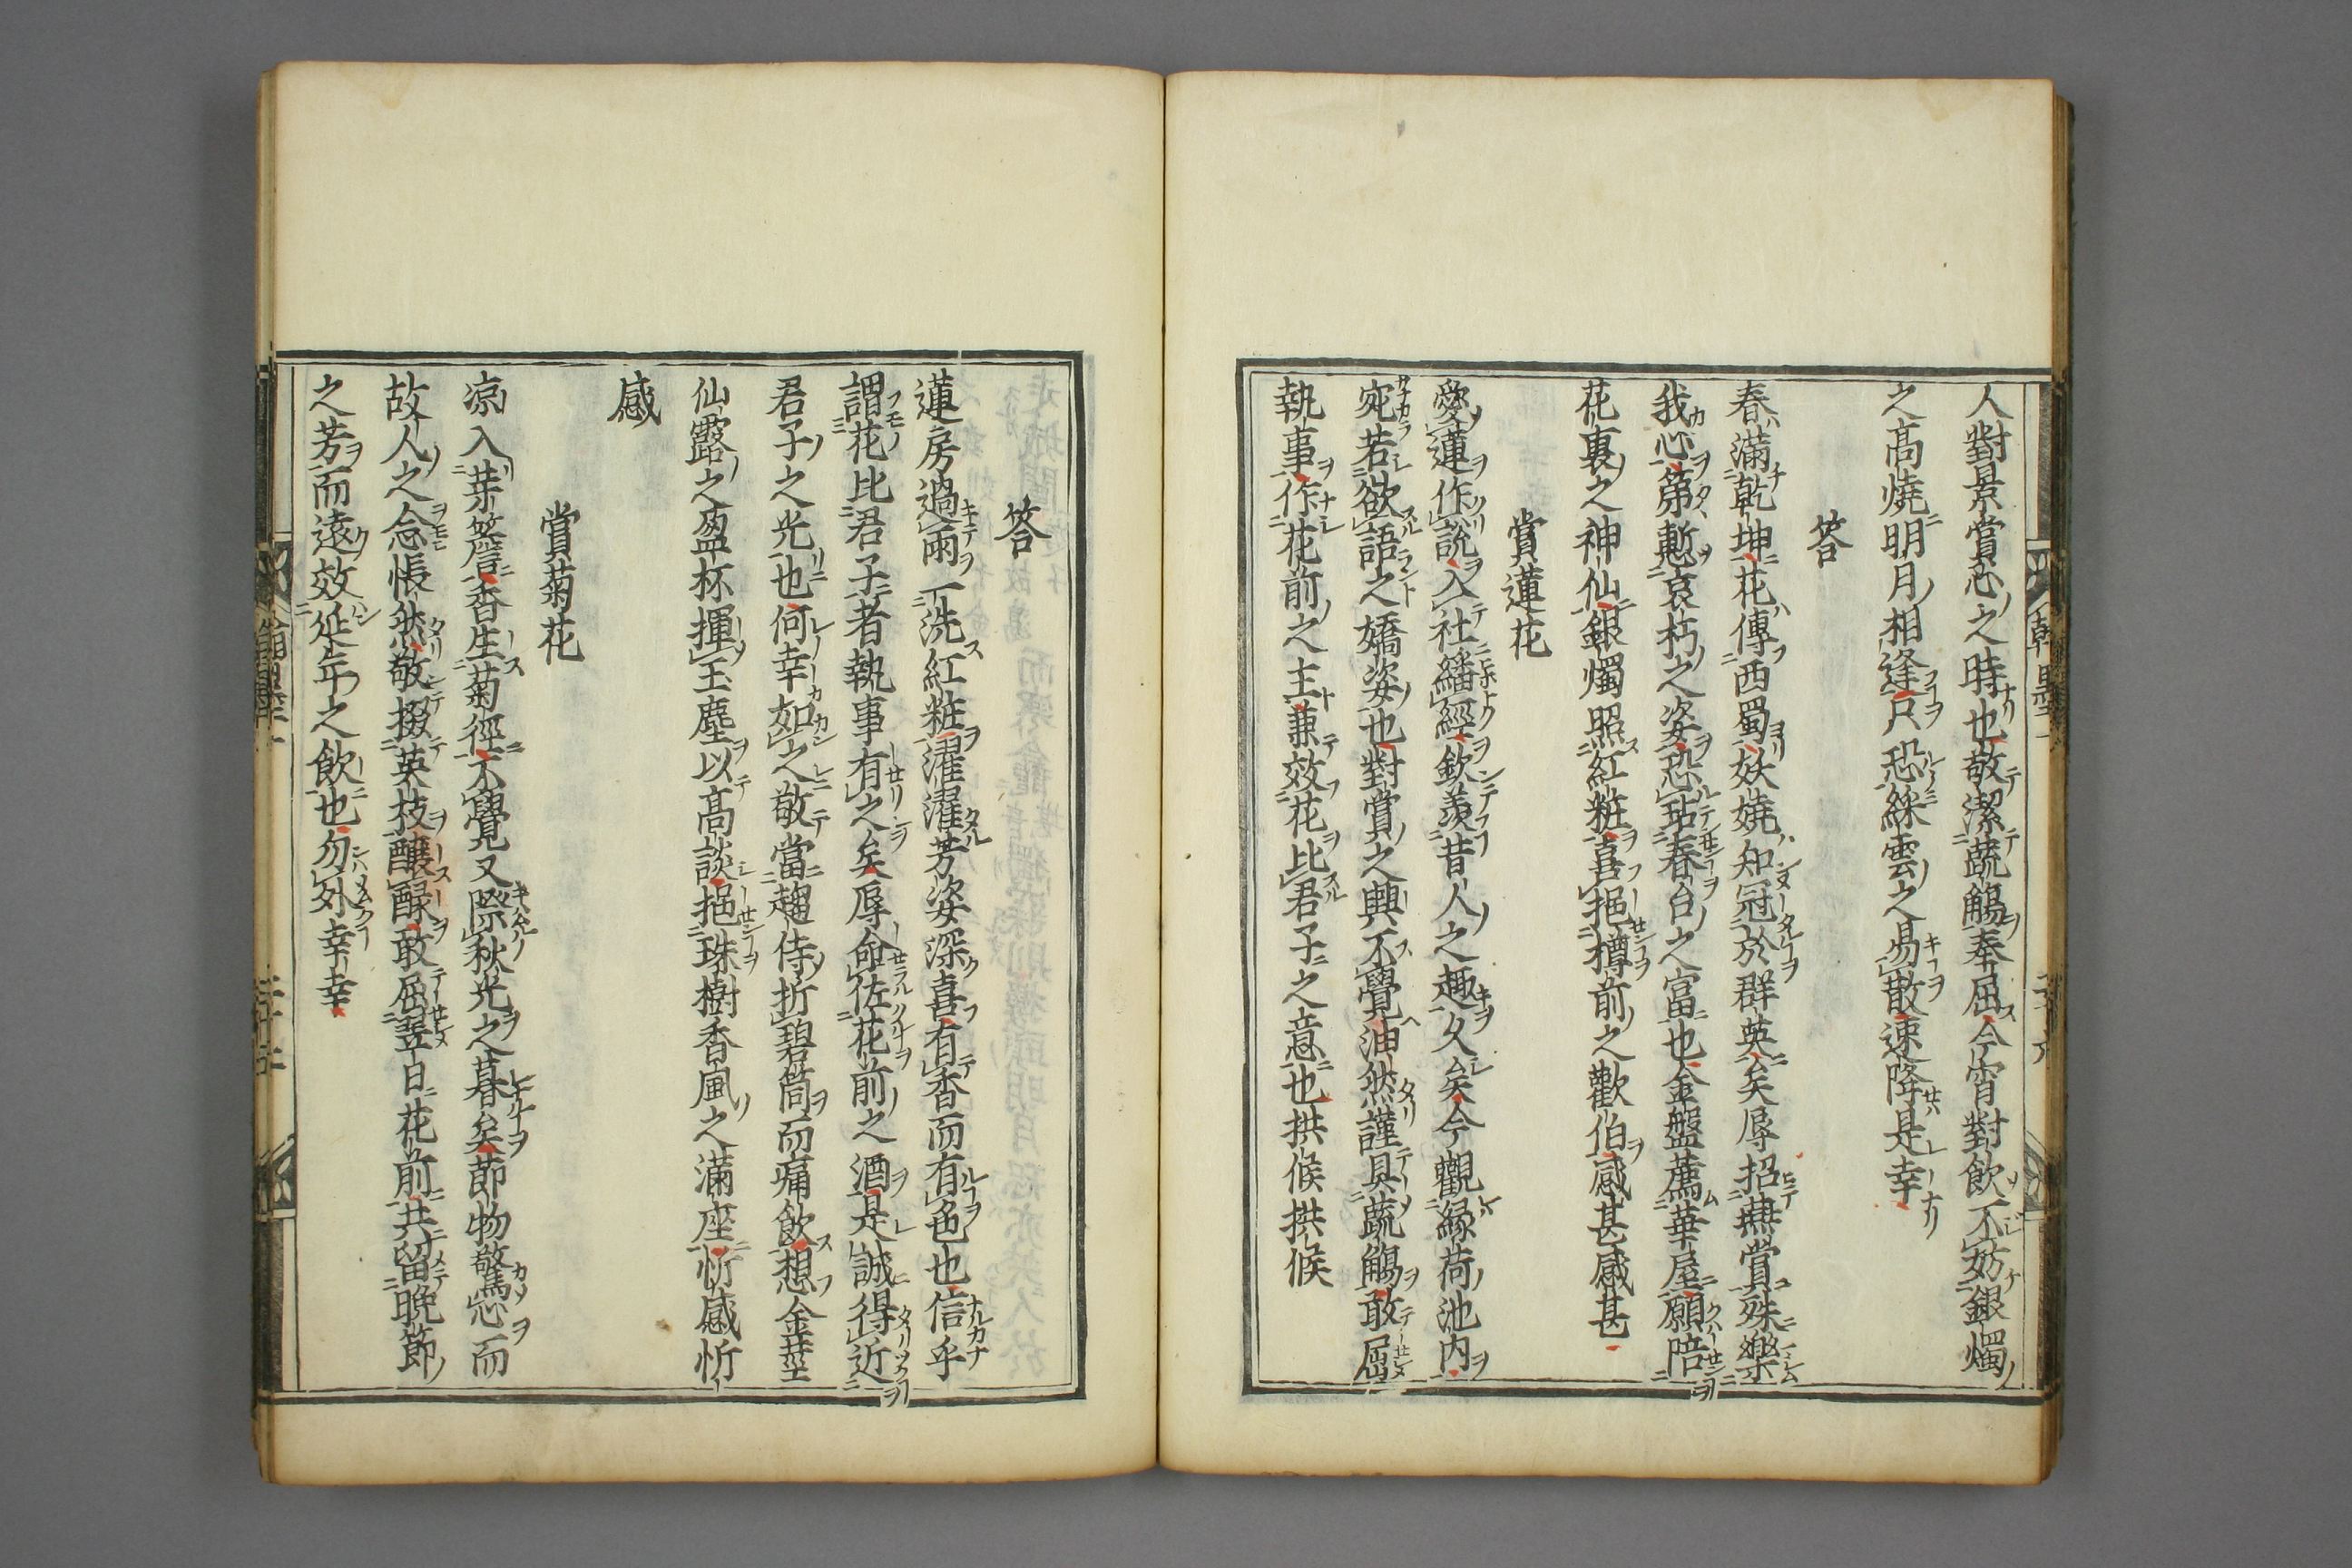 人對景賞心之時也敬潔蔬觴奉屈今宵對飲不妨銀燭
之高燒明月相逢只恐綵雲之易散速降是幸
答
春滿乾坤花傳西蜀妖嬈知冠於群英矣辱招燕賞殊樂
我心第慙衰朽之姿恐玷春台之富也金盤薦華屋願陪
花裏之神仙銀燭照紅粧喜挹樽前之歡伯感甚感甚
賞蓮花
愛蓮作説入社繙經欽羨昔人之趣久矣今觀緑荷池内
宛若欲語之嬌姿也對賞之興不覺油然謹具蔬觴敢屈
執事作花前之主兼效花比君子之意也拱候拱候
答
蓮房過雨一洗紅粧濯濯芳姿深喜有香而有色也信乎
謂花比君子者執事有之矣辱命佐花前之酒是誠得近
君子之光也何幸如之敬當趨侍折碧筒而痛飲想金莖
仙露之盈杯揮玉塵以高談挹珠樹香風之滿座忻感忻
感
賞菊花
凉入茅簷香生菊徑不覺又際秋光之暮矣節物驚心而
故人之念悵然敬掇英枝釀醁敢屈翌日花前共留晩節
之芳而遠效延年之飲也勿外幸幸